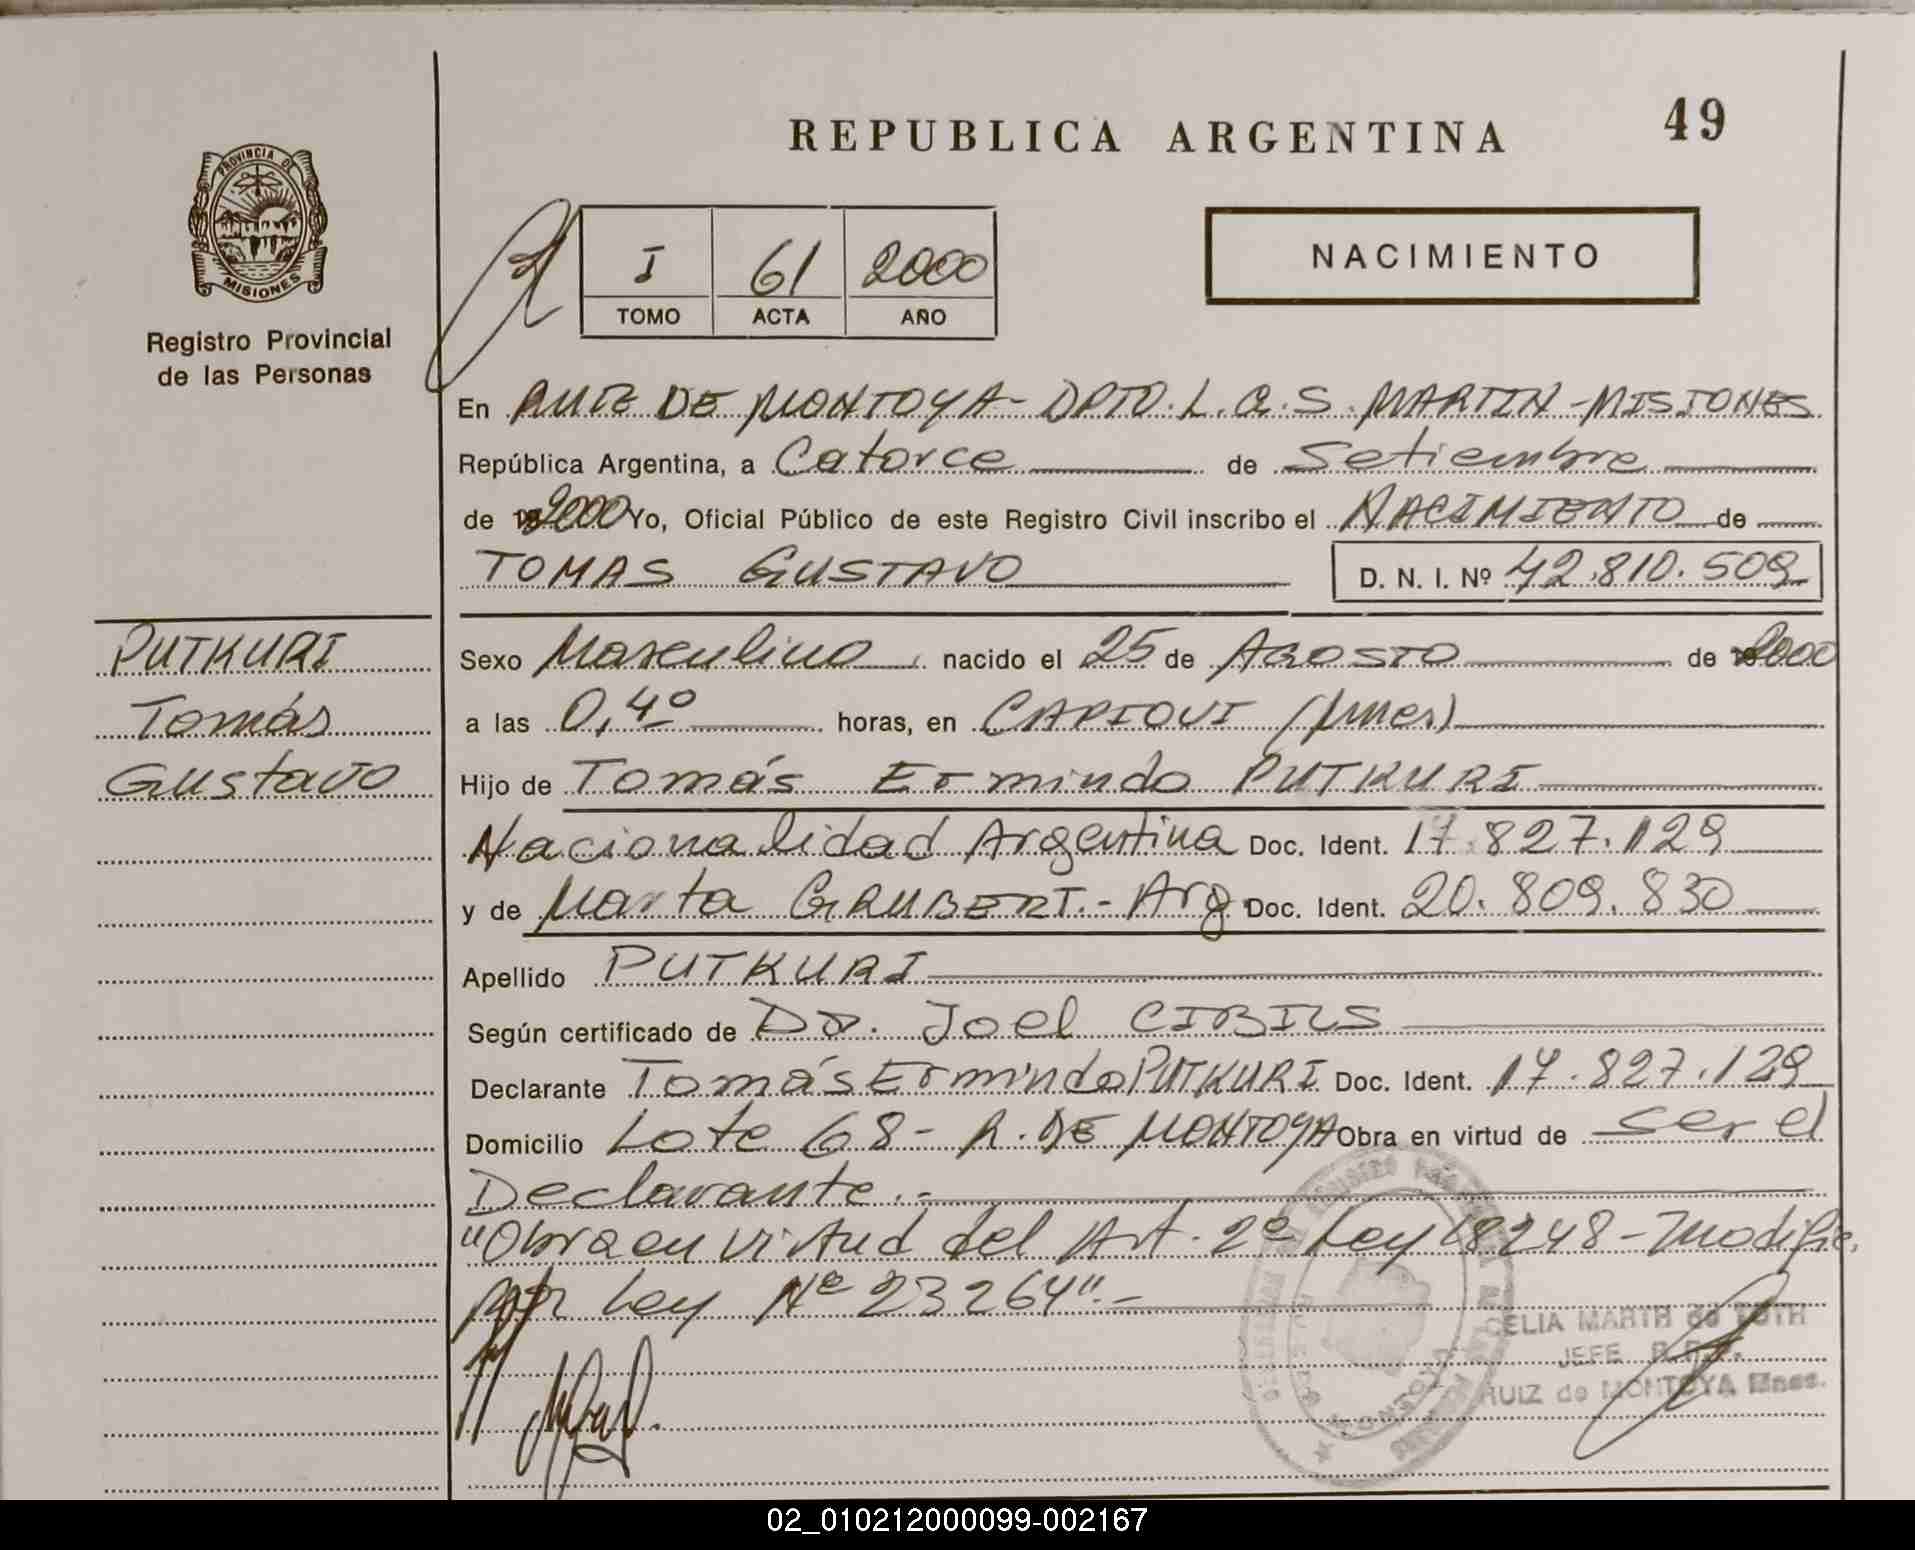 REPUBLICA ARGENTINA
49
PROVINCIA DE
MISIONES
Registro Provincial
de las Personas
I 61 2000
TOMO ACTA AÑO
NACIMIENTO
En RUIZ DE MONTOYA - DPTO. L. G. S. MARTIN - MISIONES
República Argentina, a Catorce de Setiembre
de 2000 Yo, Oficial Público de este Registro Civil inscribo el NACIMIENTO de
TOMAS GUSTAVO D. N. I. Nº 42.810.509
PUTKURI
Tomás
Gustavo
Sexo Masculino nacido el 25 de AGOSTO de 2000
a las 0,4º horas, en CAPIOVI (Mnes)
Hijo de Tomás Ermindo PUTKURI
Nacionalidad Argentina Doc. Ident. 17.827.129
y de Marta GRUBERT.- Arg. Doc. Ident. 20.809.830
Apellido PUTKURI
Según certificado de Dr. Joel CIBILS
Declarante Tomás Ermindo PUTKURI Doc. Ident. 17.827.129
Domicilio Lote 68 - R. DE MONTOYA Obra en virtud de ser el
Declarante.-
"Obra en virtud del Art. 2º Ley 18248 - Modific.
por Ley Nº 23264".-
CELIA MARTA de TOTH
JEFE R.P.P.
RUIZ de MONTOYA Mnes.
02_010212000099-002167